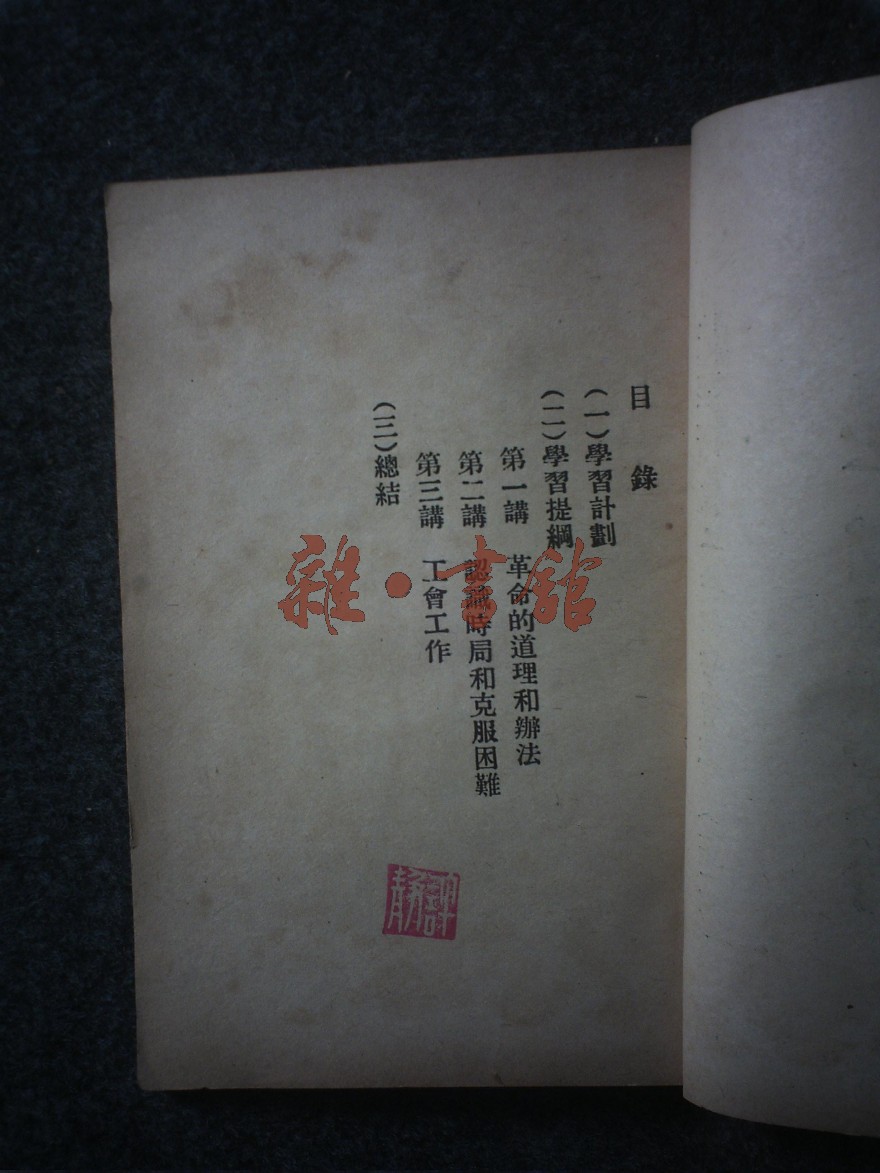 目錄
(一)學習計劃
(二)學習提綱
第一講 革命的道理和辦法
第二講 認識時局和克服困難
第三講 工會工作
(三)總結
雜·書館